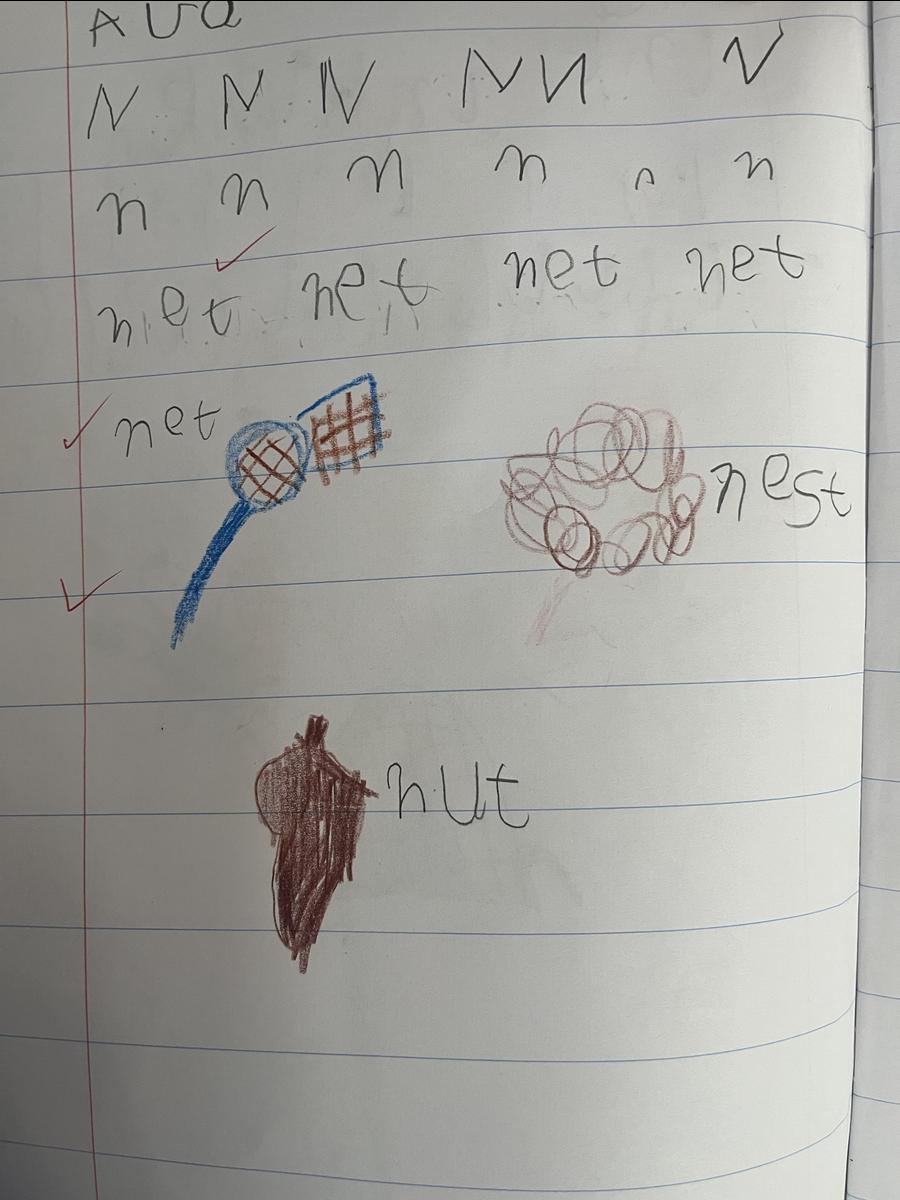 AVA
N N N N N N
n n n n n n
net net net net
net
nest
nut